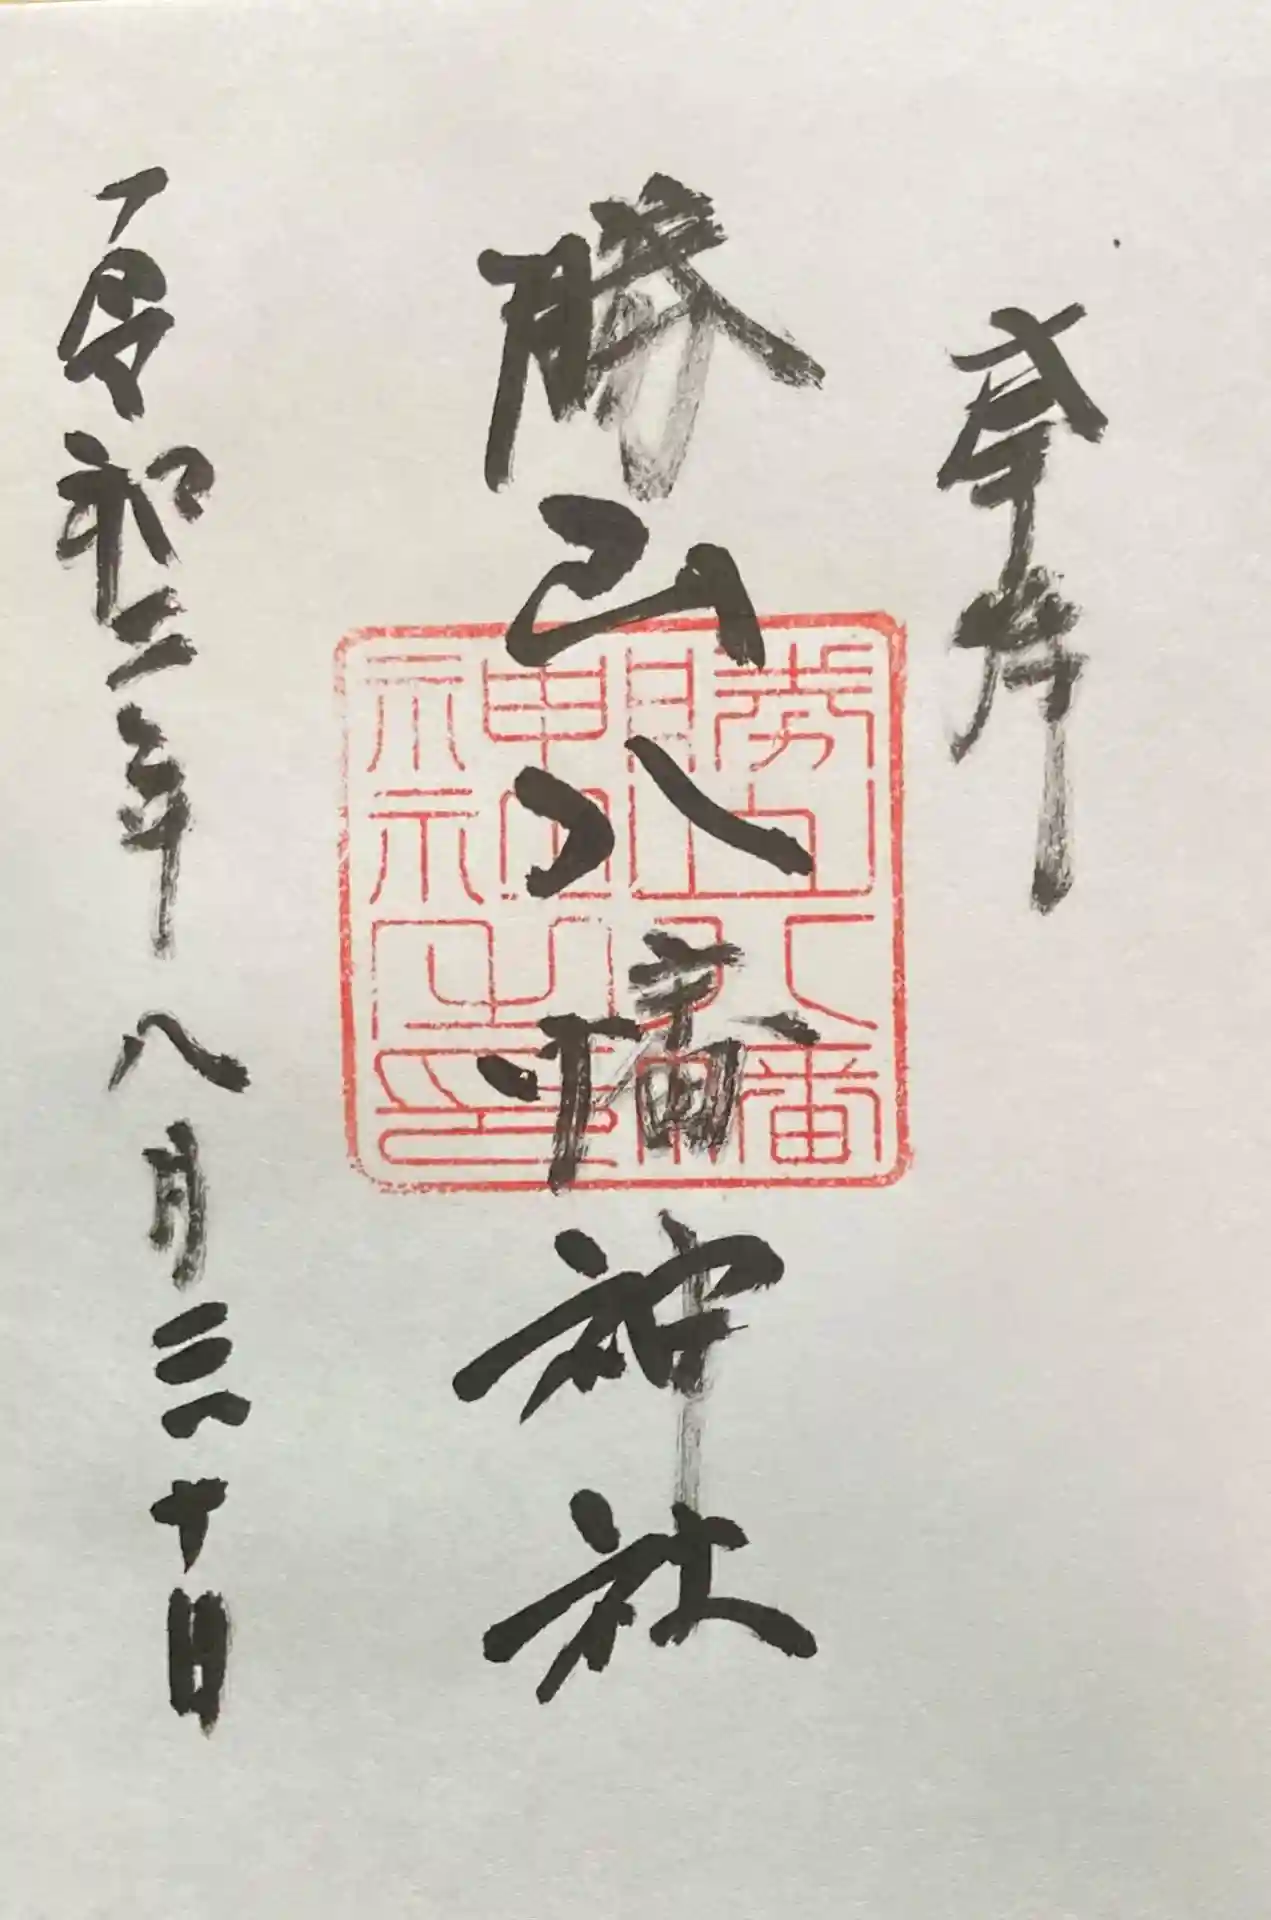 奉拝
勝山八幡神社
令和二年八月三十日
勝山八幡
神社之印